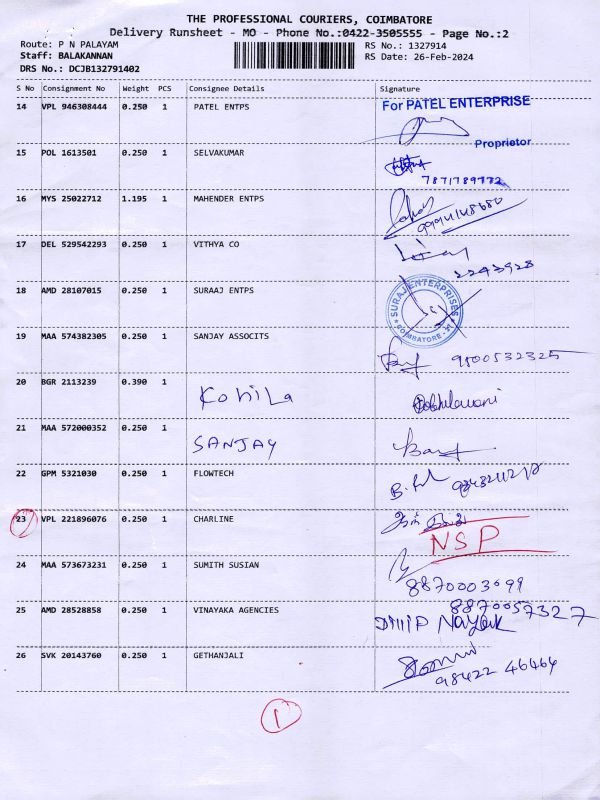 THE PROFESSIONAL COURIERS, COIMBATORE
Delivery Runsheet - MO - Phone No.:0422-3505555 - Page No.:2
Route: P N PALAYAM RS No.: 1327914
Staff: BALAKANNAN RS Date: 26-Feb-2024
DRS No.: DCJB132791402
S No Consignment No Weight PCS Consignee Details Signature
14 VPL 946308444 0.250 1 PATEL ENTPS For PATEL ENTERPRISE
Proprietor
15 POL 1613501 0.250 1 SELVAKUMAR
7871789772
16 MYS 25022712 1.195 1 MAHENDER ENTPS
9994148680
17 DEL 529542293 0.250 1 VITHYA CO
2243928
18 AMD 28107015 0.250 1 SURAAJ ENTPS
SURAJ ENTERPRISES
COIMBATORE
19 MAA 574382305 0.250 1 SANJAY ASSOCITS
9500532325
20 BGR 2113239 0.390 1 Kohila
21 MAA 572000352 0.250 1 SANJAY
22 GPM 5321030 0.250 1 FLOWTECH
23 VPL 221896076 0.250 1 CHARLINE
NSP
24 MAA 573673231 0.250 1 SUMITH SUSIAN
8870003099
25 AMD 28528858 0.250 1 VINAYAKA AGENCIES
8870057327
DILIP Nayak
26 SVK 20143760 0.250 1 GETHANJALI
98422 46464
1